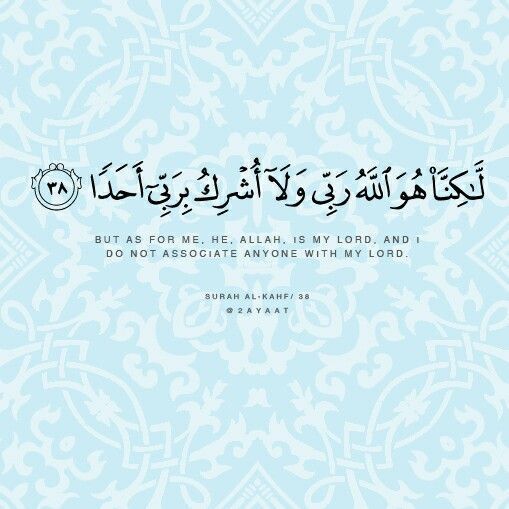 لَّٰكِنَّا۠ هُوَ ٱللَّهُ رَبِّى وَلَآ أُشْرِكُ بِرَبِّىٓ أَحَدًا ٣٨
BUT AS FOR ME, HE, ALLAH, IS MY LORD, AND I
DO NOT ASSOCIATE ANYONE WITH MY LORD.
SURAH AL-KAHF/ 38
@2AYAAT